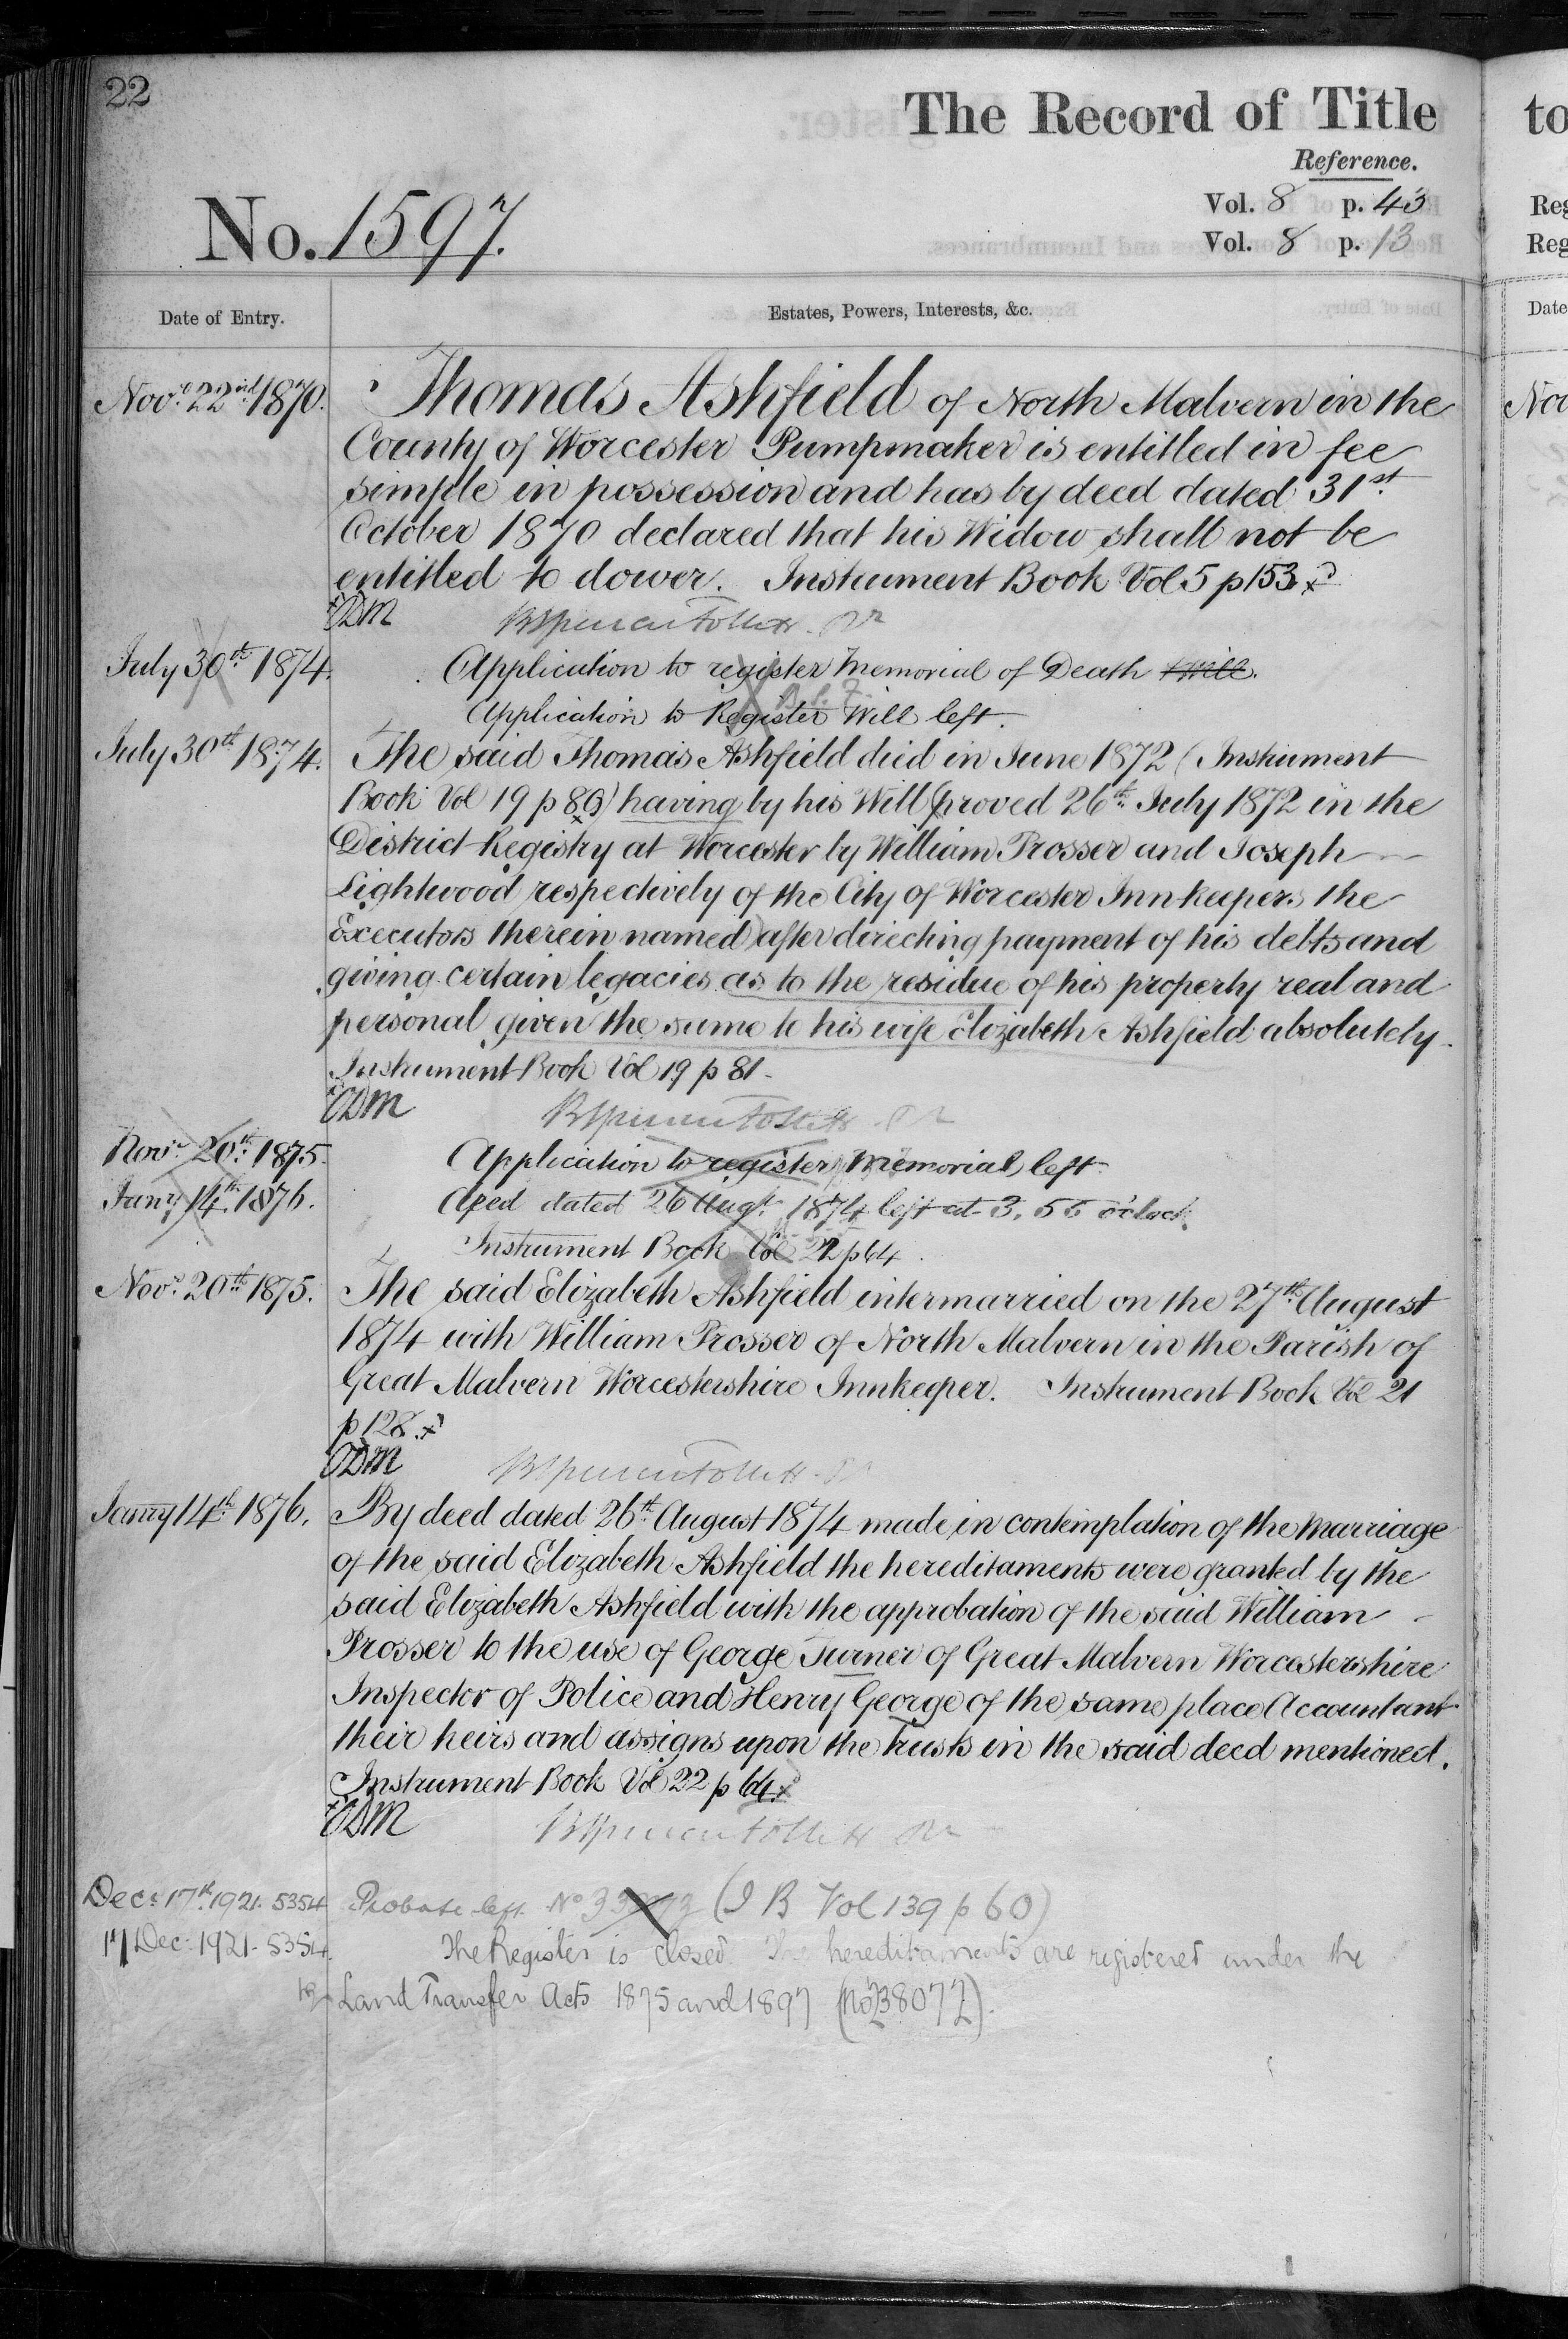 22
The Record of Title
Reference.
Vol. 8 p. 43
Vol. 8 p. 13
No. 1597.
Date of Entry.
Estates, Powers, Interests, &c.
Novr. 22nd 1870. Thomas Ashfield of North Malvern in the
County of Worcester Pumpmaker is entitled in fee
simple in possession and has by deed dated 31st
October 1870 declared that his Widow shall not be
entitled to dower. Instrument Book Vol 5 p 153
July 30th 1874. Application to register Memorial of Death & Will.
Application to Register Will left.
July 30th 1874. The said Thomas Ashfield died in June 1872 (Instrument
Book Vol 19 p 80) having by his Will (proved 26th July 1872 in the
District Registry at Worcester by William Prosser and Joseph
Lightwood respectively of the City of Worcester Innkeepers the
Executors therein named) after directing payment of his debts and
giving certain legacies as to the residue of his property real and
personal given the same to his wife Elizabeth Ashfield absolutely.
Instrument Book Vol 19 p 81.
Novr. 20th 1875. Application to register Memorial left
Jany 14th 1876. Deed dated 26 Augt. 1874 left at 3.55 o'clock
Instrument Book Vol 22 p 64.
Novr. 20th 1875. The said Elizabeth Ashfield intermarried on the 27th August
1874 with William Prosser of North Malvern in the Parish of
Great Malvern Worcestershire Innkeeper. Instrument Book Vol 21
p 128.
Jany 14th 1876. By deed dated 26th August 1874 made in contemplation of the marriage
of the said Elizabeth Ashfield the hereditaments were granted by the
said Elizabeth Ashfield with the approbation of the said William
Prosser to the use of George Turner of Great Malvern Worcestershire
Inspector of Police and Henry George of the same place Accountant
their heirs and assigns upon the trusts in the said deed mentioned.
Instrument Book Vol 22 p 64.
Decr. 17th 1921. 5354 Probate left No (I B Vol 139 p 60)
17 Dec: 1921. 5354. The Register is closed. The hereditaments are registered under the
Land Transfer Acts 1875 and 1897 (No 238072).
to
Reg
Reg
Date
Nov